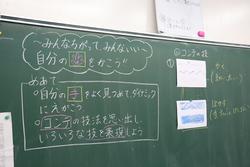 ～みんなちがって、みんないい～
自分の
をかこう
めあて
○自分の手をよく見つめて、ダイナミック
にえがこう
○コンテの技法を思い出し、
いろいろな技を表現しよう
◎コンテの技
①
ぼかす